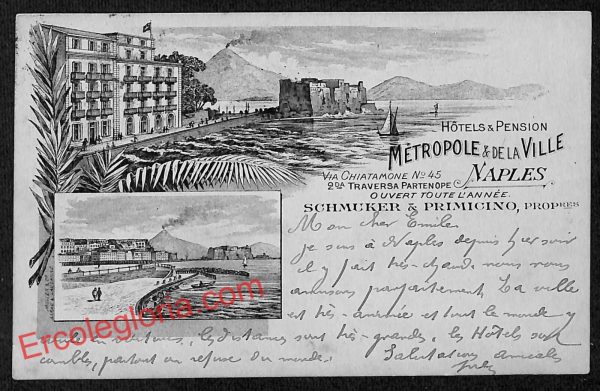 HÔTELS & PENSION
MÉTROPOLE & DE LA VILLE
VIA CHIATAMONE No 45
NAPLES
2DA TRAVERSA PARTENOPE
OUVERT TOUTE L'ANNÉE.
SCHMUKER & PRIMICINO, PROPRES
Mon cher Emile
je suis à Naples depuis hier soir
il y fait très-chaud. nous nous
amusons parfaitement. La ville
est très-animée et tout le monde y
en voitures, les distances sont très-grandes, les Hôtels sont
combles, partout on refuse du monde.
Salutations amicales
Ercolegloria.com